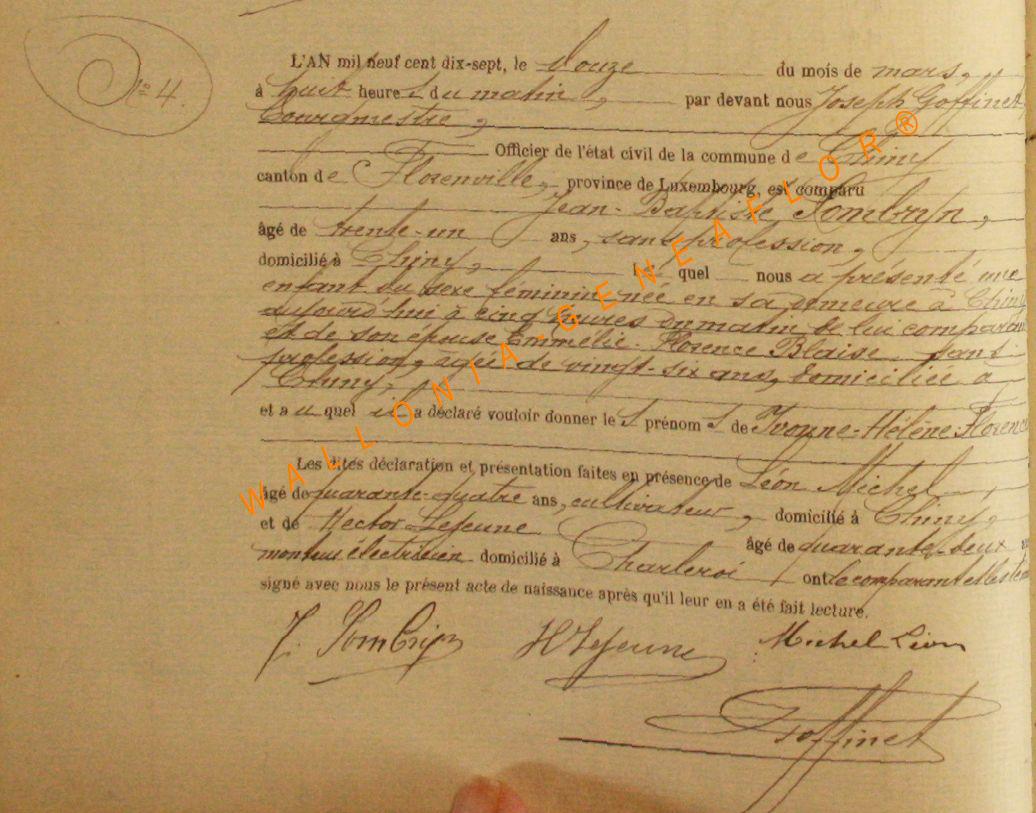 N° 4.
L'AN mil neuf cent dix-sept, le douze du mois de mars,
à huit heures du matin, par devant nous Joseph Goffinet,
Bourgmestre,
Officier de l'état civil de la commune de Chiny
canton de Florenville, province de Luxembourg, est comparu
Jean-Baptiste Sombryn,
âgé de trente-un ans, sans profession,
domicilié à Chiny, lequel nous a présenté une
enfant du sexe féminin née en sa demeure à Chiny
aujourd'hui à cinq heures du matin de lui comparant
et de son épouse Emmélie-Florence Blaise sans
profession, âgée de vingt-six ans, domiciliée à
Chiny,
et a uquel il a déclaré vouloir donner les prénoms de Yvonne-Hélène-Florence
Les dites déclaration et présentation faites en présence de Léon Michel,
âgé de quarante-quatre ans, cultivateur, domicilié à Chiny,
et de Hector Lejeune âgé de quarante-deux
monteur électricien domicilié à Charleroi ont le comparant et les
signé avec nous le présent acte de naissance après qu'il leur en a été fait lecture.
J. Sombryn H Lejeune Michel Léon
J Goffinet
WALLONIA-GENEAFLOR®